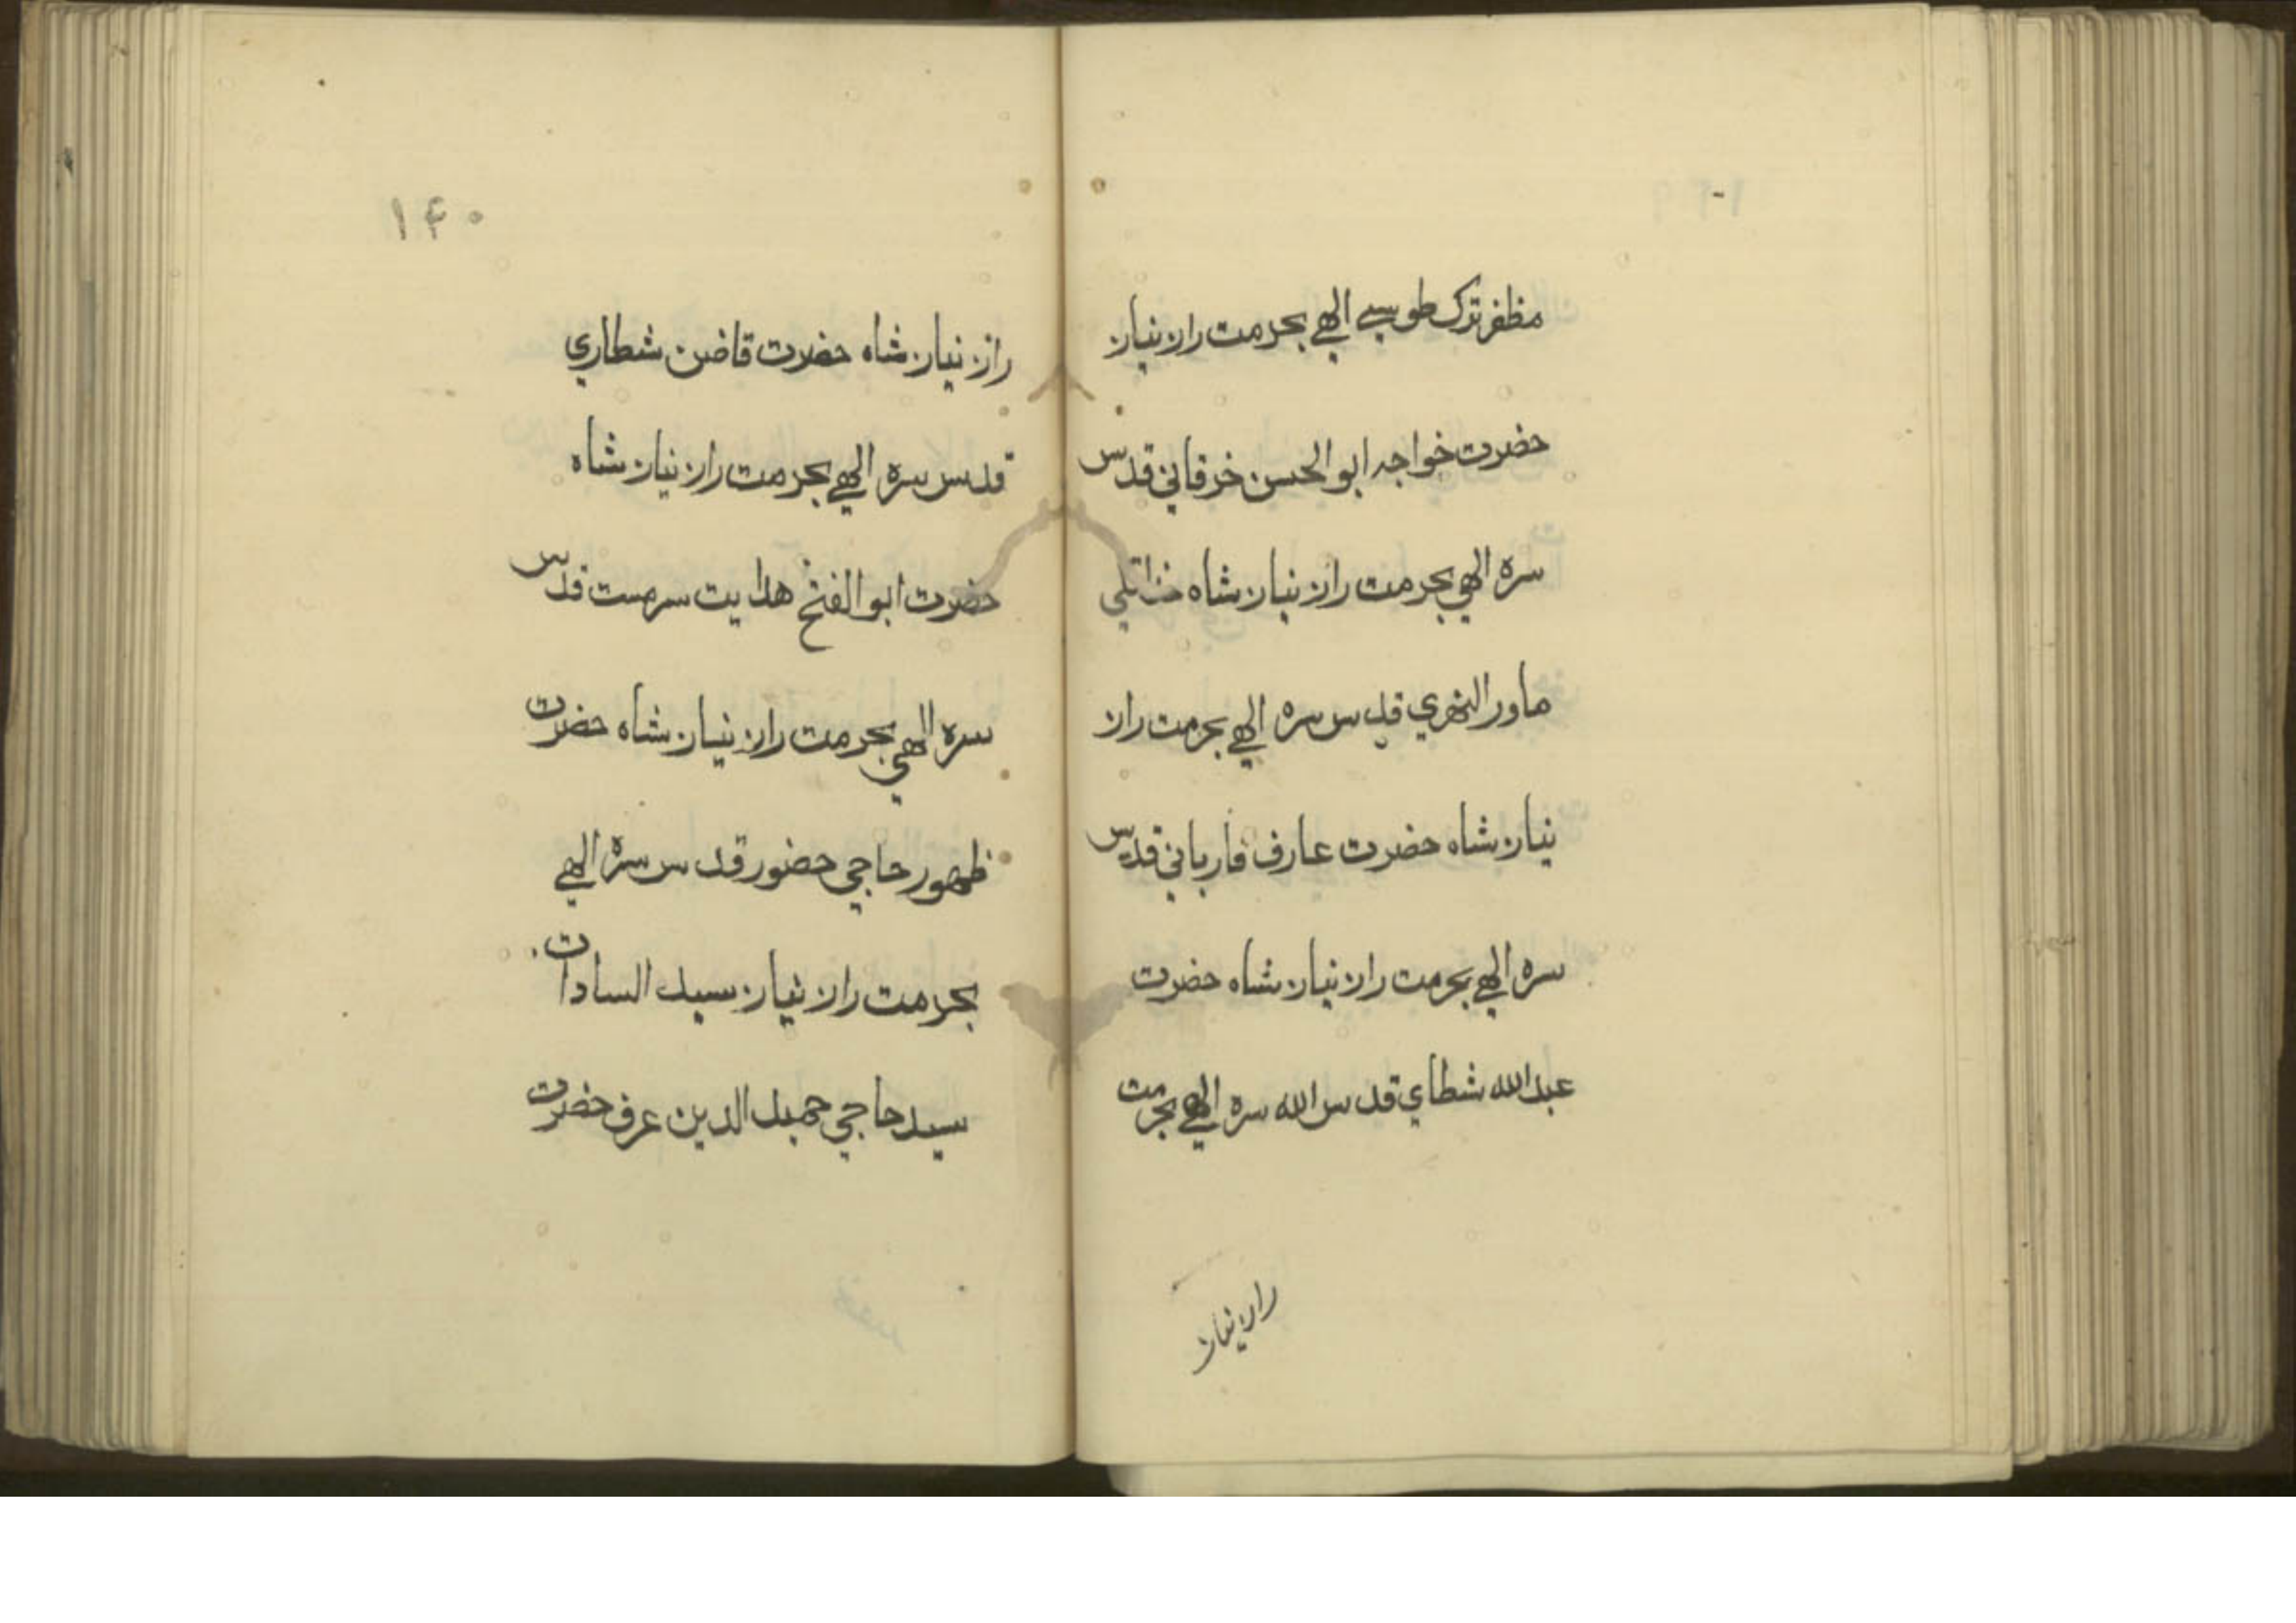 مظفر ترک طوسي الهي بحرمت راز نياز
حضرت خواجه ابو الحسن خرقاني قدس
سره الهي بحرمت راز نياز شاه خداقلي
ماور النهري قدس سره الهي بحرمت راز
نياز شاه حضرت عارف فارباني قدس
سره الهي بحرمت راز نياز شاه حضرت
عبد الله شطاي قدس الله سره الهي بحرمت
راز نياز
۱۴۰
راز نياز شاه حضرت قاضن شطاري
قدس سره الهي بحرمت راز نياز شاه
حضرت ابو الفتح هدايت سرمست قدس
سره الهي بحرمت راز نياز شاه حضرت
ظهور حاجي حضور قدس سره الهي
بحرمت راز نياز سيد السادات
سيد حاجي حميد الدين عرف حضرت